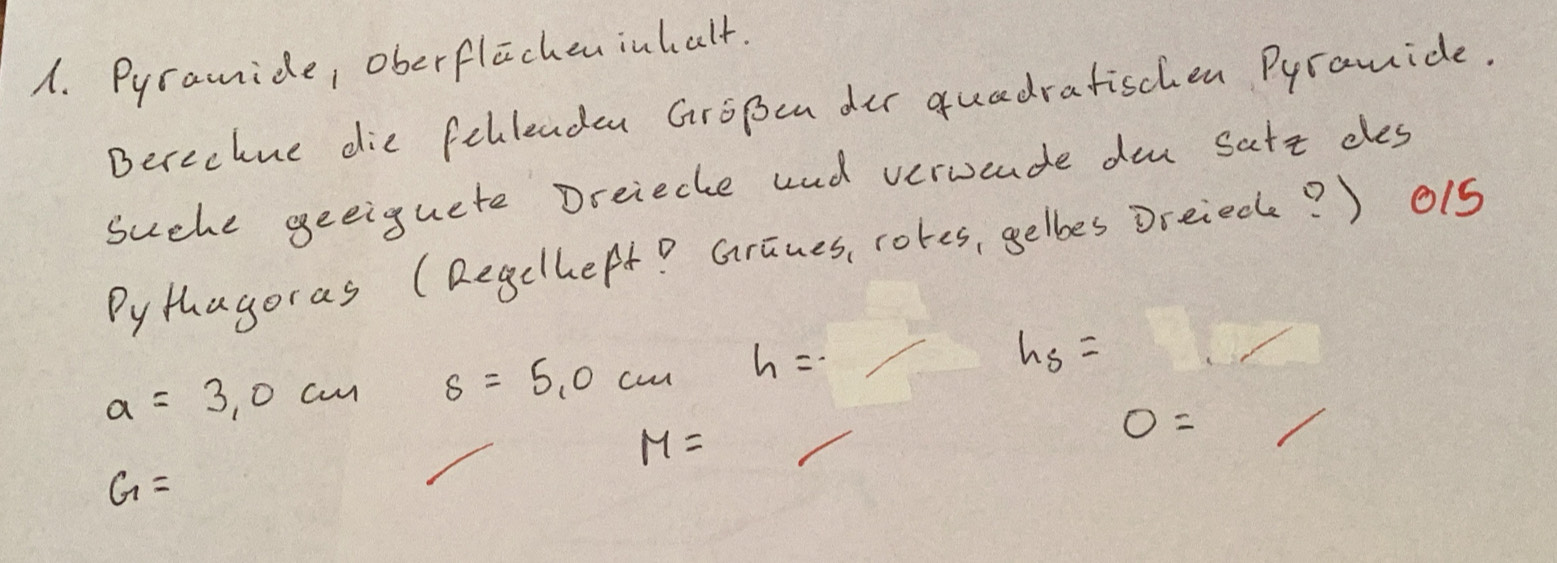 1. Pyramide, Oberflächeninhalt.
Berechne die fehlenden Größen der quadratischen Pyramide.
Suche geeignete Dreiecke und verwende den Satz des
Pythagoras (Regelheft! Grünes, rotes, gelbes Dreieck?) 0/5
a = 3,0 cm s = 5,0 cm h = hs =
G = M = O =